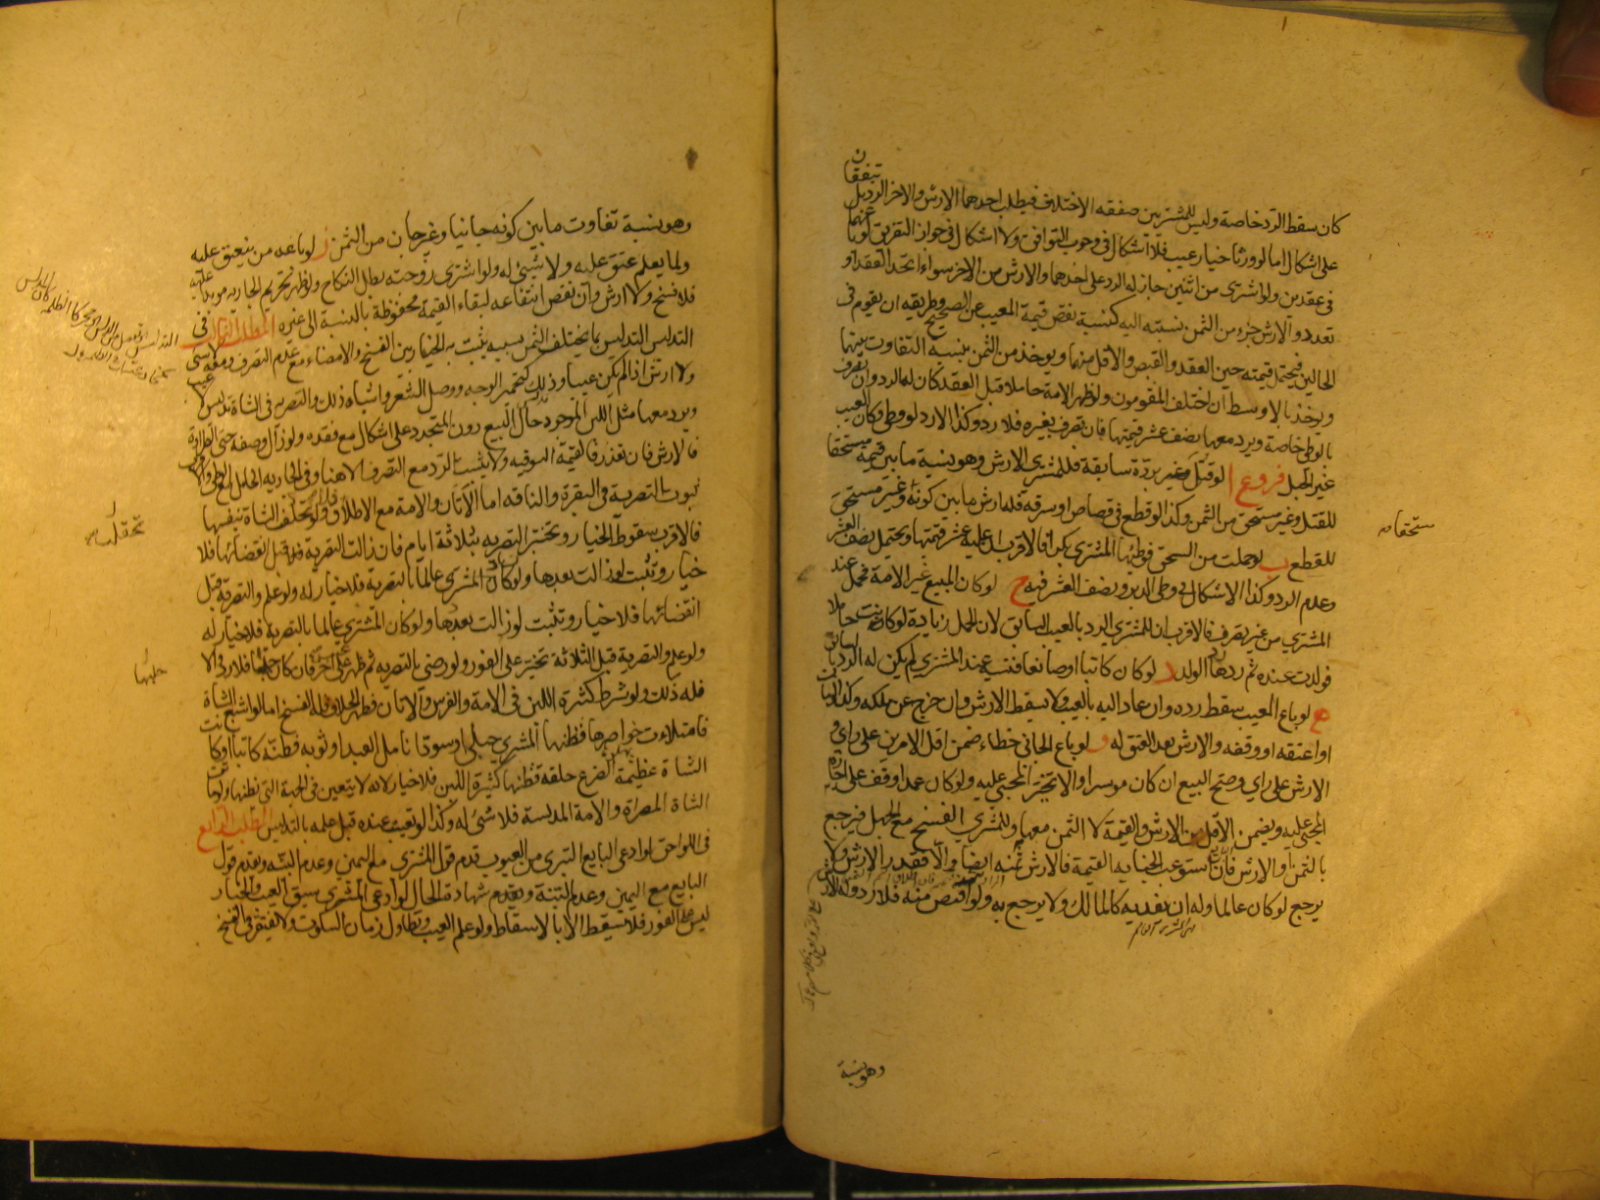 كان سقط الرد خاصة وليس للمشتريين صفقه الاختلاف فيطلب احدهما الارش والاخر الرد بل يتفقان
على اشكال اما لو ورثا خيار عيب فلا اشكال في وجوب التوافق ولا اشكال في جواز التفريق لو باعهما
في عقدين ولو اشترى من اثنين جاز له الرد على احدهما والارش من الاخر سواء اتحد العقد او
تعدد والارش جزء من الثمن نسبته اليه كنسبة نقص قيمة المعيب عن الصحيح وطريقه ان يقوم في
الحالين فيحتمل قيمته حين العقد والقبض والاقل منهما ويوخذ من الثمن بنسبة التفاوت بينهما
ويوخذ بالاوسط ان اختلف المقومون ولو ظهر الامة حاملا قبل العقد كان له الرد وان تصرف
بالوطي خاصة ويرد معها نصف عشر قيمتها فان تصرف بغيره فلا رد وكذا لا رد لو وطئ وكان العيب
غير الحبل فروع ا لو قتل بردة سابقة فللمشتري الارش وهو نسبة ما بين قيمته مستحقا
للقتل وغير مستحق من الثمن وكذا لو قطع في قصاص او سرقه فله ارش ما بين كونه وغير مستحق
للقطع ب لو حملت من السحق فوطئها المشتري بكرا فالاقرب ان عليه عشر قيمتها ويحتمل نصف العشر
وعدم الرد وكذا الاشكال في وطي الدبر ونصف العشر فيه ج لو كان المبيع غير الامة فحمل عند
المشتري من غير تصرف فالاقرب ان للمشتري الرد بالعيب السابق لان الحمل زيادة لو كانت حاملا
فولدت عنده ثم ردها رد الولد د لو كان كاتبا او صانعا فنسيه عند المشتري لم يكن له الرد بالسابق
ه لو باع المعيب سقط رده وان عاد اليه بالعيب ولا يسقط الارش وان خرج عن ملكه وكذا لو مات
او اعتقه او وقفه والارش بعد العتق له و لو باع الجاني خطاء ضمن اقل الامرين على راي و
الارش على راي وصح البيع ان كان موسرا والا تخير المجني عليه ولو كان عمدا وقف على اجازة
المجني عليه ويضمن الاقل من الارش والقيمة لا الثمن معها وللمشتري الفسخ مع الجهل فيرجع
بالثمن او الارش فان استوعبت الجناية القيمة فالارش ثمنه ايضا والا فقدر الارش ولا
يرجع لو كان عالما وله ان يفديه كالمالك ولا يرجع به ولو اقتص منه فلا رد وله الارش
مستحقا صه
وهو نسبة
وهو نسبة تفاوت ما بين كونه جانيا وغير جان من الثمن ز لو باعه من ينعتق عليه
ولما يعلم عتق عليه ولا شيئ له ولو اشترى زوجته بطل النكاح ولو ظهر تحريم الجارية موبدا عليه
فلا فسخ ولا ارش وان نقص انتفاعه لبقاء القيمة محفوظة بالنسبة الى غيره المطلب الثالث في
التدليس التدليس بما يختلف الثمن بسببه يثبت به الخيار بين الفسخ والامضاء مع عدم التصرف ومعه لا شئ
ولا ارش اذا لم يكن عيبا وذلك كتحمير الوجه ووصل الشعر واشباه ذلك والتصرية في الشاة تدليس لا عيب
ويرد معها مثل اللبن الموجود حال البيع دون المتجدد على اشكال مع فقده ولو زال وصفه حتى الطراوة
فالارش فان تعذر فالقيمة السوقيه ولا يثبت الرد مع التصرف الا هنا وفي الجارية الحامل مع الوطي والاقرب
ثبوت التصرية في البقرة والناقه اما الاتان والامة مع الاطلاق فلا ولو تحفلت الشاة بنفسها
فالاقرب سقوط الخيار وتختبر التصريه بثلاثة ايام فان زالت التصرية قبل انقضائها فلا
خيار وتثبت لو زالت بعدها ولو كان المشتري عالما بالتصرية فلا خيار له ولو علم بالتصرية قبل
انقضائها فلا خيار وتثبت لو زالت بعدها ولو كان المشتري عالما بالتصرية فلا خيار له
ولو علم بالتصرية قبل الثلاثة تخير على الفور ولو رضي بالتصريه ثم ظهر على اخر فان كان حلبها فلا رد والا
فله ذلك ولو شرط كثرة اللبن في الامة والفرس والاتان فظهر الخلاف فله الفسخ اما لو اشبع الشاة
فامتلات خواصرها فظنها المشتري حبلى او سود انامل العبد او ثوبه فظنه كاتبا او كانت
الشاة عظيمة الضرع خلقه فظنها كثيرة اللبن فلا خيار لانه لا يتعين في الجهة التي ظنها ولو ماتت
الشاة المصراة والامة المدلسة فلا شئ له وكذا لو تعيبت عنده قبل علمه بالتدليس المطلب الرابع
في اللواحق لو ادعى البايع التبري من العيوب قدم قول المشتري مع اليمين وعدم البينه ويقدم قول
البايع مع اليمين وعدم البينة وتقديم شهادة الحال لو ادعى المشتري سبق العيب والخيار
ليس على الفور فلا يسقط الا بالاسقاط ولو علم العيب وتطاول زمان السكوت ولا يفتقر في الفسخ
حلبها